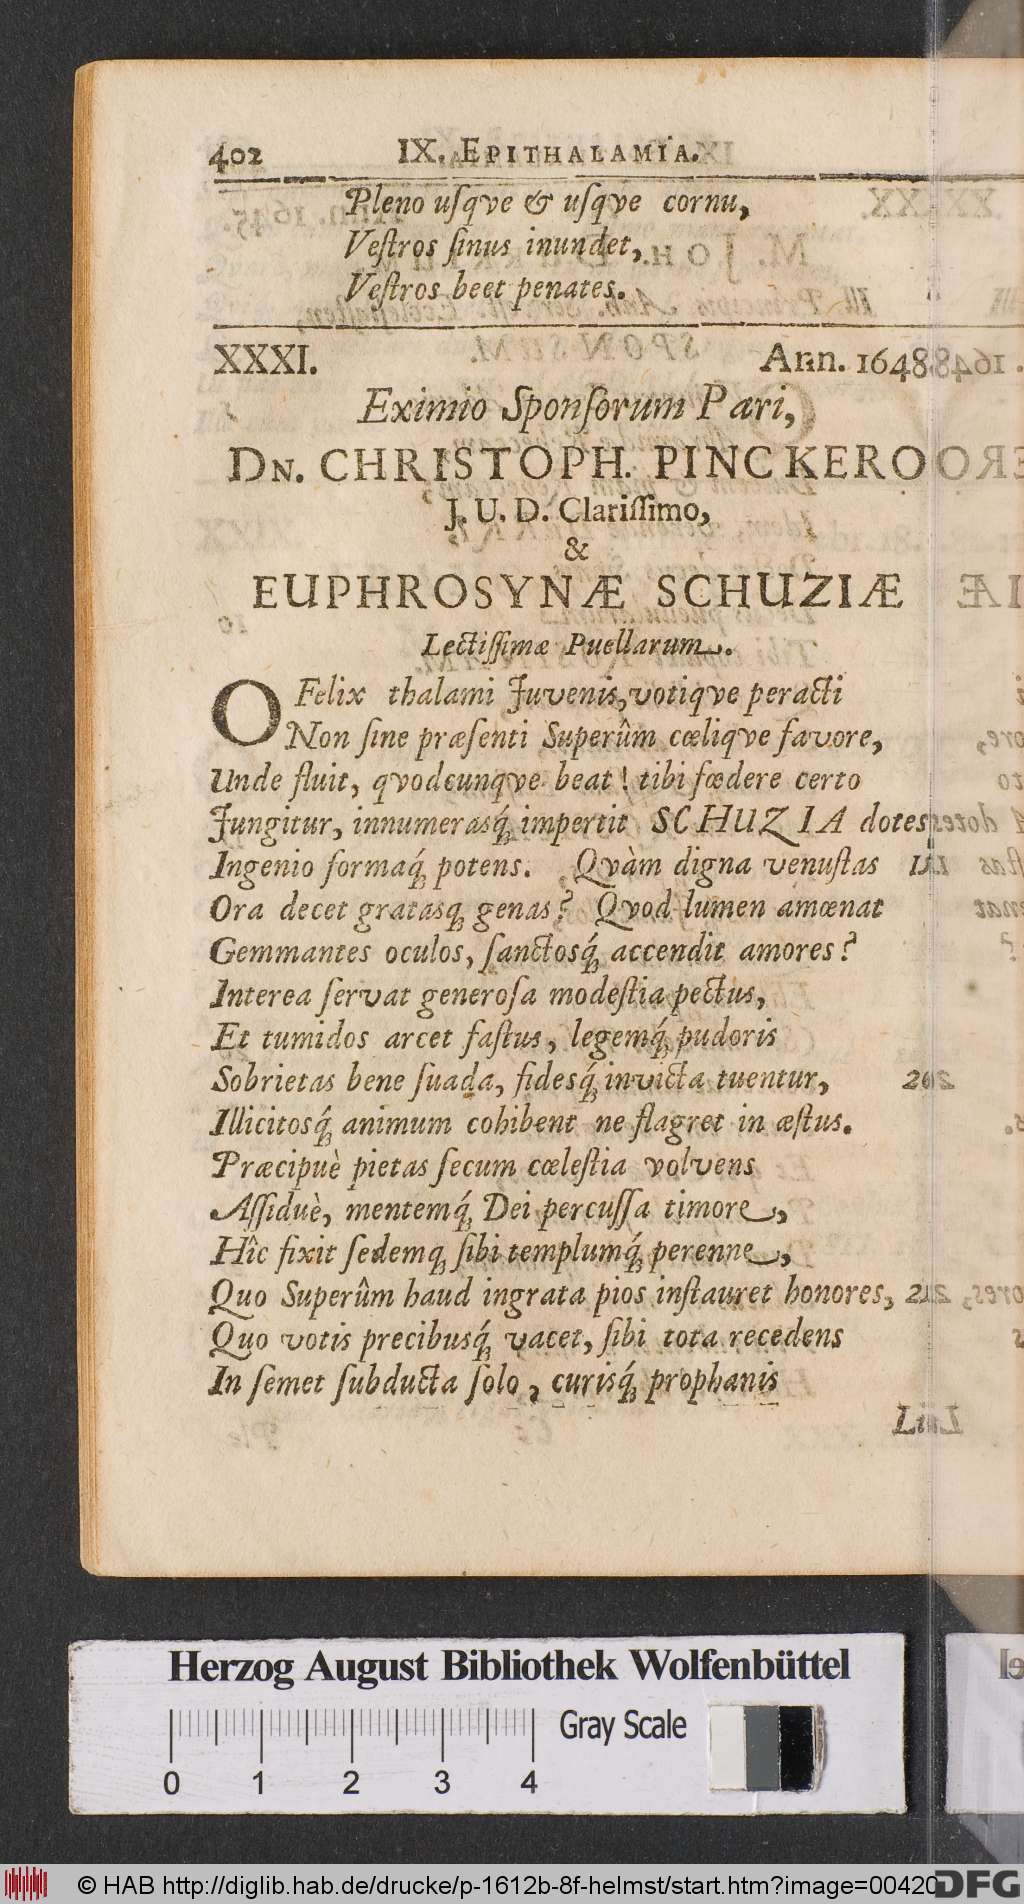 402 IX. EPITHALAMIA.
Pleno uſqve & uſqve cornu,
Veſtros ſinus inundet,
Veſtros beet penates.
XXXI. Ann. 1648
Eximio Sponſorum Pari,
DN. CHRISTOPH. PINCKERO
J. U. D. Clariſſimo,
&
EUPHROSYNÆ SCHUZIÆ
Lectiſſimæ Puellarum.
O Felix thalami Juvenis, votiqve peracti
Non ſine præſenti Superûm cœliqve favore,
Unde fluit, qvodcunqve beat! tibi fœdere certo
Jungitur, innumerasq́; impertit SCHUZIA dotes
Ingenio formaq́; potens. Qvàm digna venuſtas
Ora decet gratasq; genas? Qvod lumen amœnat
Gemmantes oculos, ſanctosq́; accendit amores?
Interea ſervat generoſa modeſtia pectus,
Et tumidos arcet faſtus, legemq́; pudoris
Sobrietas bene ſuada, fidesq́; invicta tuentur,
Illicitosq́; animum cohibent ne flagret in æſtus.
Præcipuè pietas ſecum cœleſtia volvens
Aſſiduè, mentemq́; Dei percuſſa timore,
Hîc fixit ſedemq; ſibi templumq́; perenne,
Quo Superûm haud ingrata pios inſtauret honores,
Quo votis precibusq́; vacet, ſibi tota recedens
In ſemet ſubducta ſolo, curisq́; prophanis
Herzog August Bibliothek Wolfenbüttel
0 1 2 3 4 Gray Scale
© HAB http://diglib.hab.de/drucke/p-1612b-8f-helmst/start.htm?image=00420
DFG